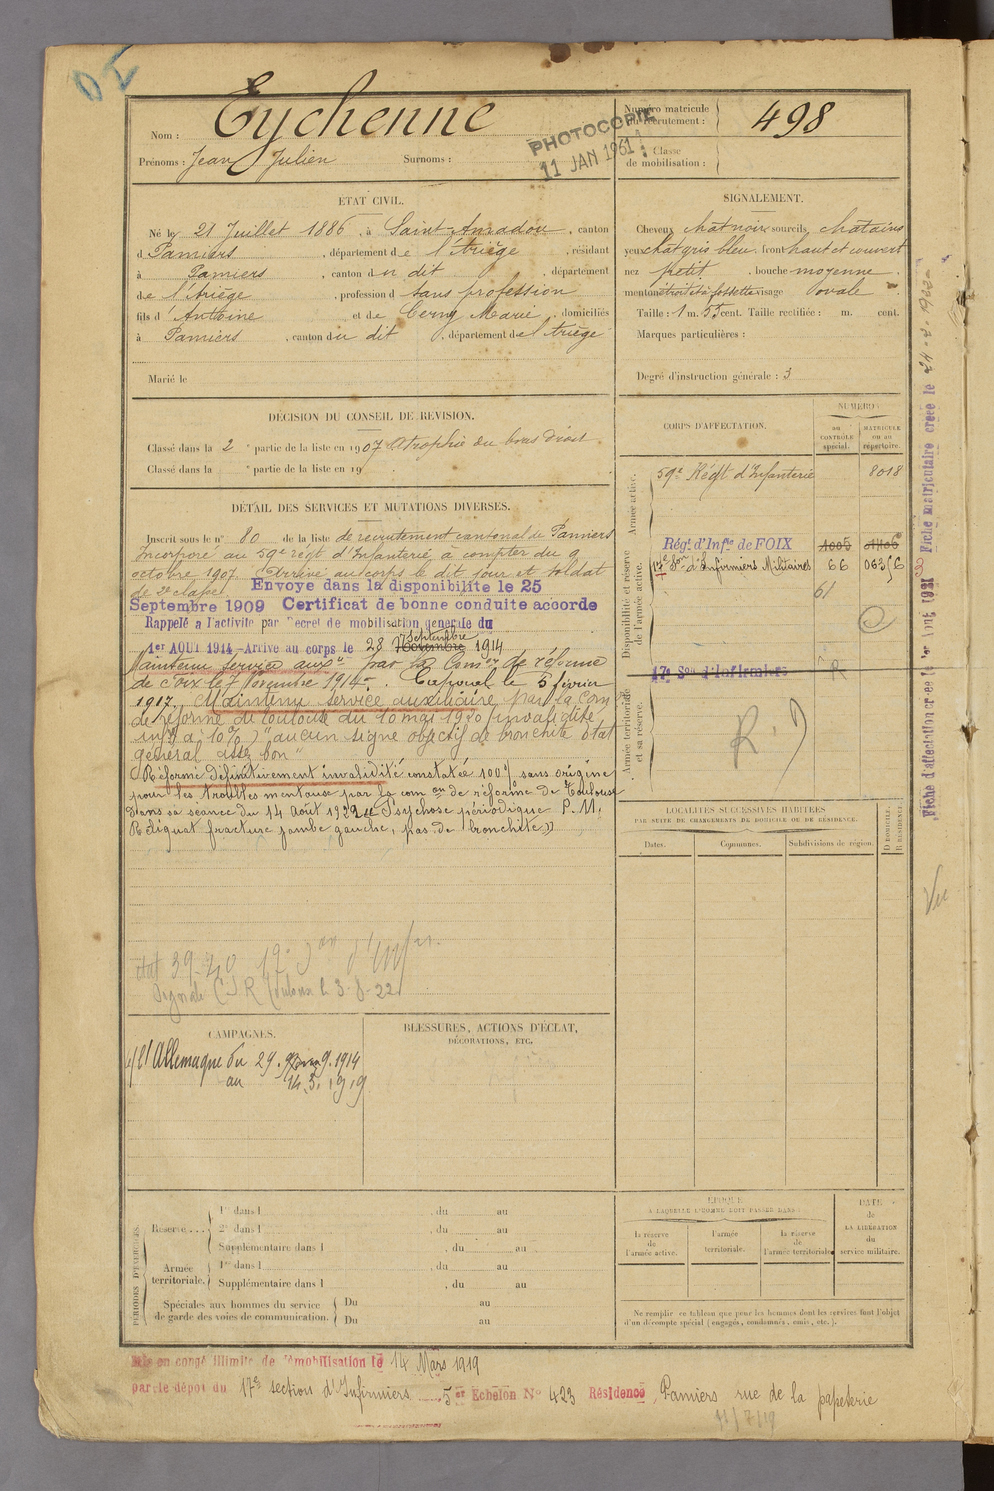 Nom : Eychenne
Prénoms : Jean Julien Surnoms :
PHOTOCOPIE
11 JAN 1961
Numéro matricule
du recrutement : 498
Classe
de mobilisation :
ETAT CIVIL.
Né le 21 Juillet 1886, à Saint Amadou, canton
d Pamiers, département de l'Ariège, résidant
à Pamiers, canton du dit, département
de l'Ariège, profession d sans profession
fils d'Antoine et de Cerny Marie, domiciliés
à Pamiers, canton du dit, département de l'Ariège
Marié le
SIGNALEMENT.
Cheveux chat noir sourcils châtains
yeux chat gris bleu, front haut et couvert
nez petit, bouche moyenne
menton étroit à fossette visage ovale
Taille : 1 m. 55 cent. Taille rectifiée : m. cent.
Marques particulières :
Degré d'instruction générale : 3
DÉCISION DU CONSEIL DE RÉVISION.
Classé dans la 2 e partie de la liste en 1907 Atrophie du bras droit
Classé dans la e partie de la liste en 19
CORPS D'AFFECTATION.
NUMÉROS
au
CONTRÔLE
spécial.
MATRICULE
ou au
répertoire.
Armée active.
59e Régt d'Infanterie 8018
Disponibilité et réserve
de l'armée active.
Régt d'Infie de FOIX 1005
17e Son d'Infirmiers Militaires 66
61
17e Son d'Infirmiers
R
Armée territoriale
et sa réserve.
DÉTAIL DES SERVICES ET MUTATIONS DIVERSES.
Inscrit sous le n° 80 de la liste de recrutement cantonal de Pamiers
Incorporé au 59e régt d'Infanterie à compter du 9
octobre 1907. Arrivé au corps le dit jour et soldat
de 2e classe. Envoyé dans la disponibilité le 25
Septembre 1909 Certificat de bonne conduite accordé
Rappelé à l'activité par Décret de mobilisation générale du
1er AOUT 1914 – Arrivé au corps le 28 Septembre 1914
Maintenu service auxre par la Comon de réforme
de Foix le 7 Novembre 1914. Caporal le 5 février
1917. Maintenu service auxiliaire par la Com
de réforme de Toulouse du 10 mai 1920 (invalidité
infre à 10%) "aucun signe objectif de bronchite Etat
général assez bon"
Réformé définitivement invalidité constatée 100% sans origine
pour les troubles mentaux par la comon de réforme de Toulouse
dans sa séance du 14 Août 1922 "Psychose périodique P.M.
Reliquat fracture jambe gauche, pas de bronchite"
état 39-40 17e Son d'Infir.
Signalé C.S.R Toulouse le 3-8-22
LOCALITÉS SUCCESSIVES HABITÉES
PAR SUITE DE CHANGEMENTS DE DOMICILE OU DE RÉSIDENCE.
Dates. Communes. Subdivisions de région.
D DOMICILE.
R RÉSIDENCE.
CAMPAGNES.
c/ l'Allemagne du 29. 9. 1914
au 14. 3. 1919
BLESSURES, ACTIONS D'ÉCLAT,
DÉCORATIONS, ETC.
PÉRIODES D'EXERCICES.
Réserve....
1re dans l , du au
2e dans l , du au
Supplémentaire dans l , du au
Armée
territoriale.
1re dans l , du au
Supplémentaire dans l , du au
Spéciales aux hommes du service
de garde des voies de communication.
Du au
Du au
ÉPOQUE
À LAQUELLE L'HOMME DOIT PASSER DANS :
la réserve
de
l'armée active.
l'armée
territoriale.
la réserve
de
l'armée territoriale.
DATE
de
LA LIBÉRATION
du
service militaire.
Ne remplir ce tableau que pour les hommes dont les services font l'objet
d'un décompte spécial (engagés, condamnés, omis, etc.).
Mis en congé illimité de démobilisation le 14 Mars 1919
par le dépôt du 17e section d'Infirmiers 5e Echelon N° 423 Résidence, Pamiers rue de la papeterie
Fiche matriculaire créée le
Fiche d'affectation créée le 1er Août 1931
Vu